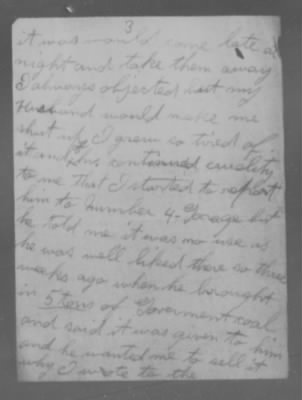 3
it was would come late at
night and take them away
I always objected but my
Husband would make me
shut up I grew so tired of
it and his continued cruelty
to me that I started to report
him to Number 4 - Garage but
he told me it was no use as
he was well liked there so three
weeks ago when he brought
in 5 tons of Goverment coal
and said it was given to him
and he wanted me to sell it
why I wrote to the